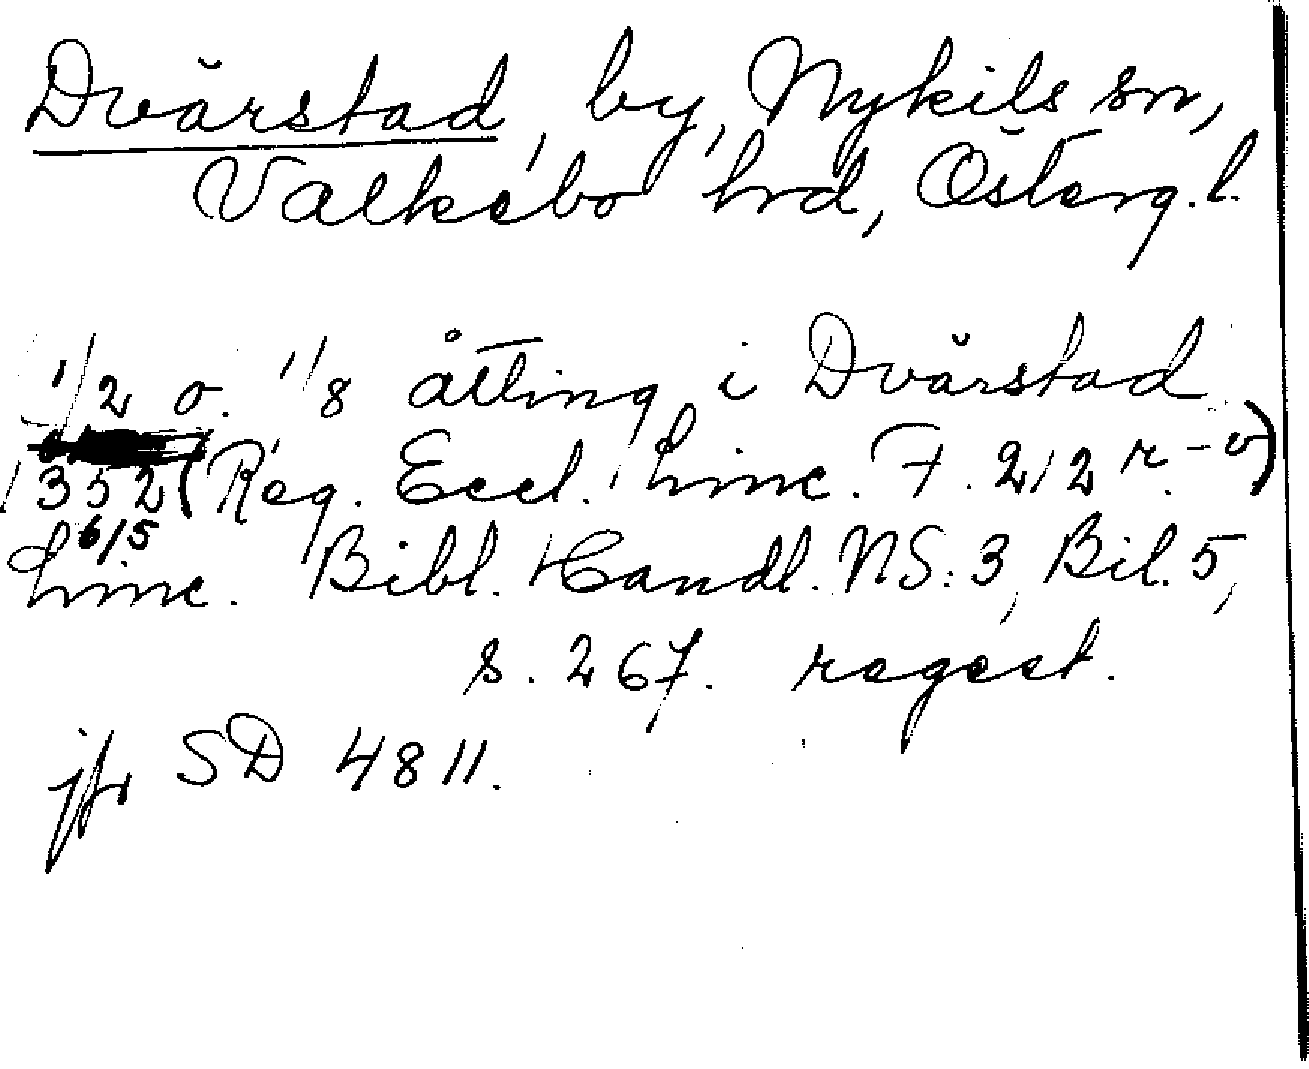 Dvärstad, by, Nykils sn,
Valkebo hrd, Österg. l.
1/2 o. 1/8 åtting i Dvärstad
1352 (Reg. Eccl. Linc. F. 212 r.-v)
6/5
Linc. Bibl. Handl. NS: 3, Bil. 5,
s. 267. regest.
jfr SD 4811.